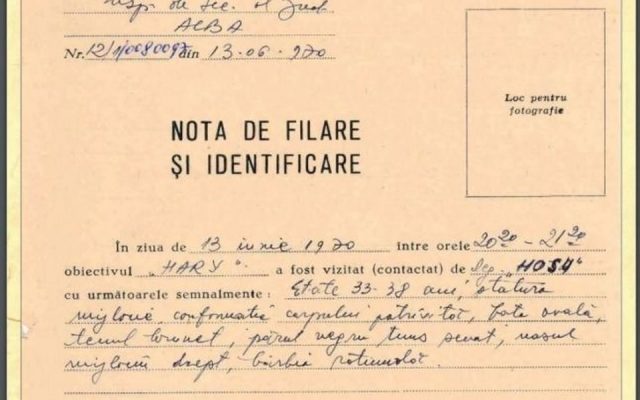 Insp. de Sec. al Jud.
ALBA
Nr. 12/ din 13.06.970
Loc pentru
fotografie
NOTA DE FILARE
ȘI IDENTIFICARE
În ziua de 13 iunie 1970 între orele 20²⁰ – 21²⁰
obiectivul „HARY” a fost vizitat (contactat) de leg. „HOSU”
cu următoarele semnalmente: Etate 33-38 ani, statură
mijlocie conformația corpului potrivită, fața ovală,
tenul brunet, părul negru tuns scurt, nasul
mijlociu drept, bărbia rotundă.